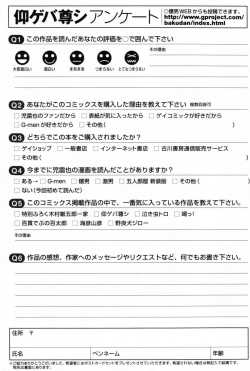 仰ゲバ尊シアンケート
○爆男WEBからも投稿できます。
http://www.gproject.com/
bakodan/index.html
Q1 この作品を読んだあなたの評価を○で囲んで下さい
大変面白い 面白い まあまあ つまらない とてもつまらない
その理由
Q2 あなたがこのコミックスを購入した理由を教えて下さい 複数回答可
□児雷也のファンだから □表紙が気に入ったから □ゲイコミックが好きだから
□G-menが好きだから □その他( )
Q3 どちらでこの本をご購入されましたか?
□ゲイショップ □一般書店 □インターネット書店 □古川書房通信販売サービス
□その他( )
Q4 今までに児雷也の漫画を読んだことありますか?
□ある→ □G-men □爆男 □激男 □五人部屋 新装版 □その他( )
□ない(今回初めて読んだ)
Q5 このコミックス掲載作品の中で、一番気に入っている作品を教えて下さい。
□特別ふろく木村雛五郎一家 □仰ゲバ尊シ □泣き虫トロ □曙っ!
□百貫でぶの百太郎 □海鼓山彦 □野良犬ジロー
その理由
Q6 作品の感想、作家へのメッセージやリクエストなど、何でもお書き下さい。
住所 〒
氏名 ペンネーム 年齢